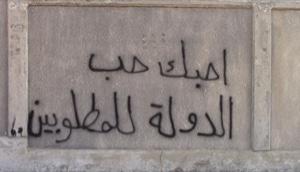 احبك حب
الدولة للمطلوبين